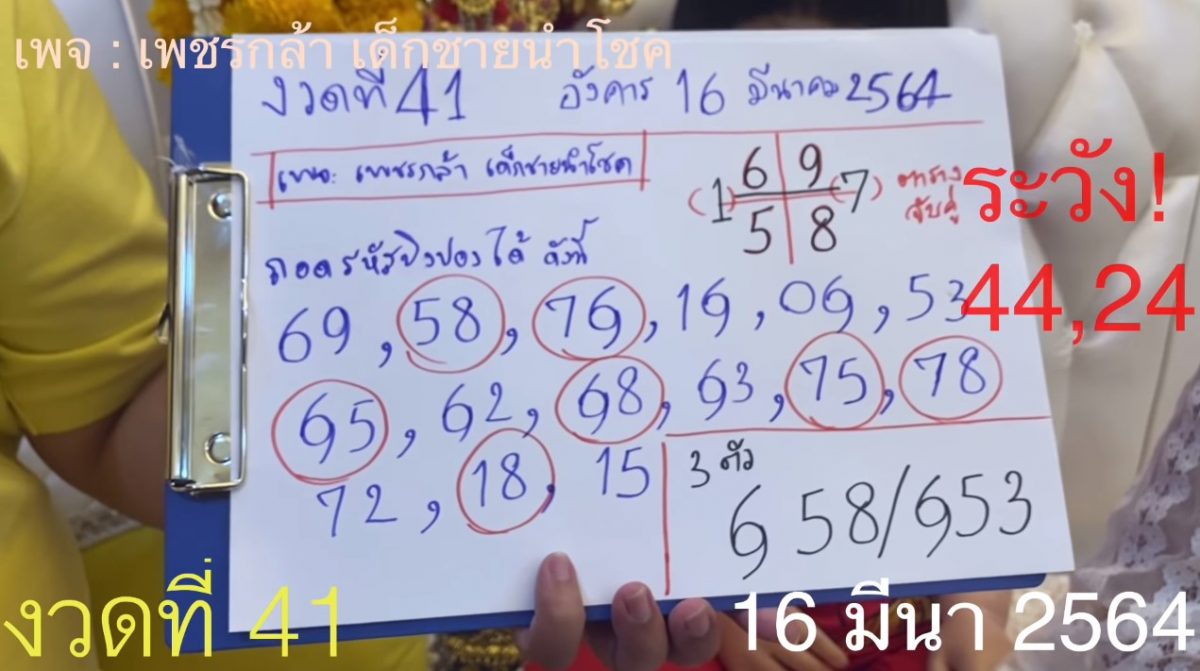 เพจ : เพชรกล้า เด็กชายนำโชค
งวดที่ 41 อังคาร 16 มีนาคม 2564
เพจ: เพชรกล้า เด็กชายนำโชค
6 9
(1) (7)
5 8
ตาราง
จับคู่
ระวัง!
44,24
ถอดรหัสปิงปองได้ ดังนี้
69, 58, 76, 16, 06, 53
65, 62, 68, 63, 75, 78
72, 18, 15
3 ตัว
658/653
งวดที่ 41
16 มีนา 2564